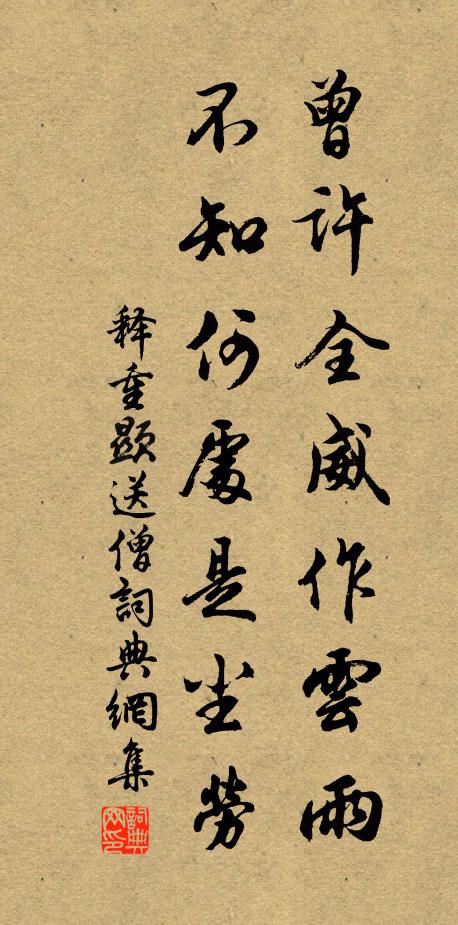 曾許全威作雲雨
不知何處是尘勞
释重顯送僧詞典網集
詞典网印